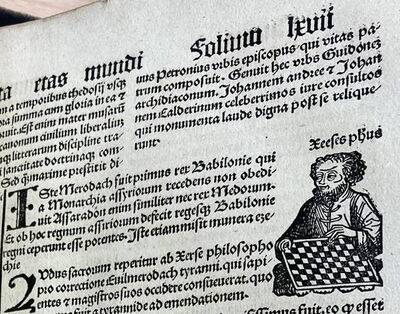 ta etas mundi
Folium lxvii
m a temporibus theodosij vsq̃
ra summa cum gloria in ea &
ruit. Est enim mater musarū
canonum ciuilium liberaliū
q̃ litterarum discipline tra-
i sanctitate doctrinaq̃ com-
Sed q̃ maxime prestitit di-
nus Petronius vrbis episcopus qui vitas pa
rum composuit. Genuit hec vrbs Guidonez
archidiaconum. Johannem andree & Johan
nem Calderinum celeberrimos iure consultos
qui monumenta laude digna post se relique-
runt.
Xerses phus
ISte Merodach fuit primus rex Babilonie qui
a Monarchia assyriorum recedens non obedi
uit Assaradon enim similiter nec rex Medorum.
Et ob hoc regnum assyriorum defecit regesq̃ Babilonie
regni ceperunt esse potentes. Iste etiam misit munera eze
chie
LUdus sacrorum reperitur ab Xerse philosopho
pro correctione Euilmerodach tyranni. qui sapi
entes & magistros suos occidere consueuerat. quo
a tyrannide ad emendationem
fuit. eo q̃ esset